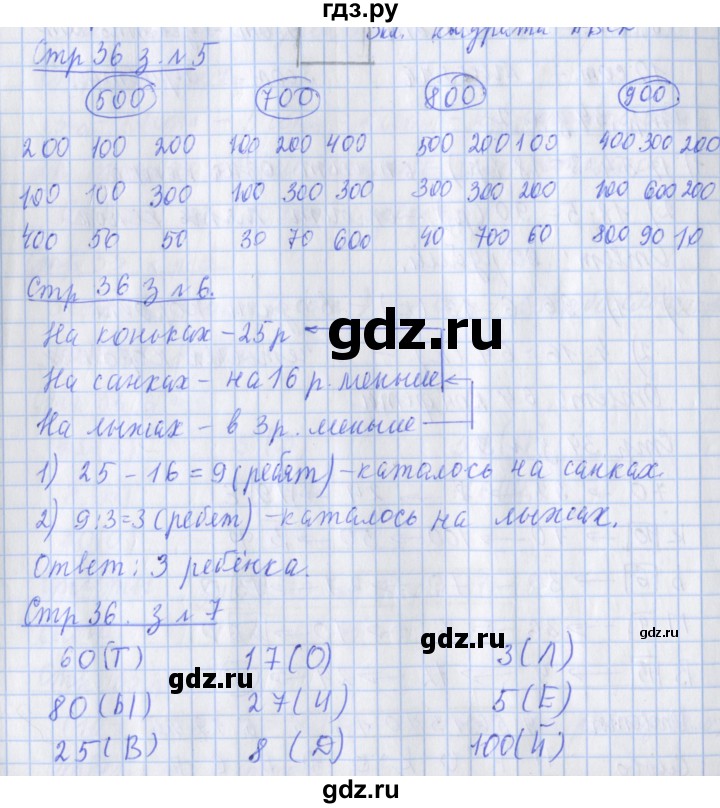 гдз.ру
Стр 36 з. №5
500 700 800 900
200 100 200 100 200 400 500 200 100 400 300 200
100 100 300 100 300 300 300 300 200 100 600 200
400 50 50 30 70 600 40 700 60 800 90 10
Стр 36 з №6.
На коньках - 25 р
gdz.ru
На санках - на 16 р. меньше
На лыжах - в 3 р. меньше
1) 25 - 16 = 9 (ребят) - каталось на санках.
2) 9:3=3 (ребят) - каталось на лыжах.
Ответ: 3 ребёнка.
Стр 36. з № 7
gdz.ru
60 (Т) 17 (О) 3 (Л)
gdz.ru
gdz.ru
80 (Ы) 27 (И) 5 (Е)
25 (В) 8 (Д) 100 (Й)
gdz.ru
gdz.ru